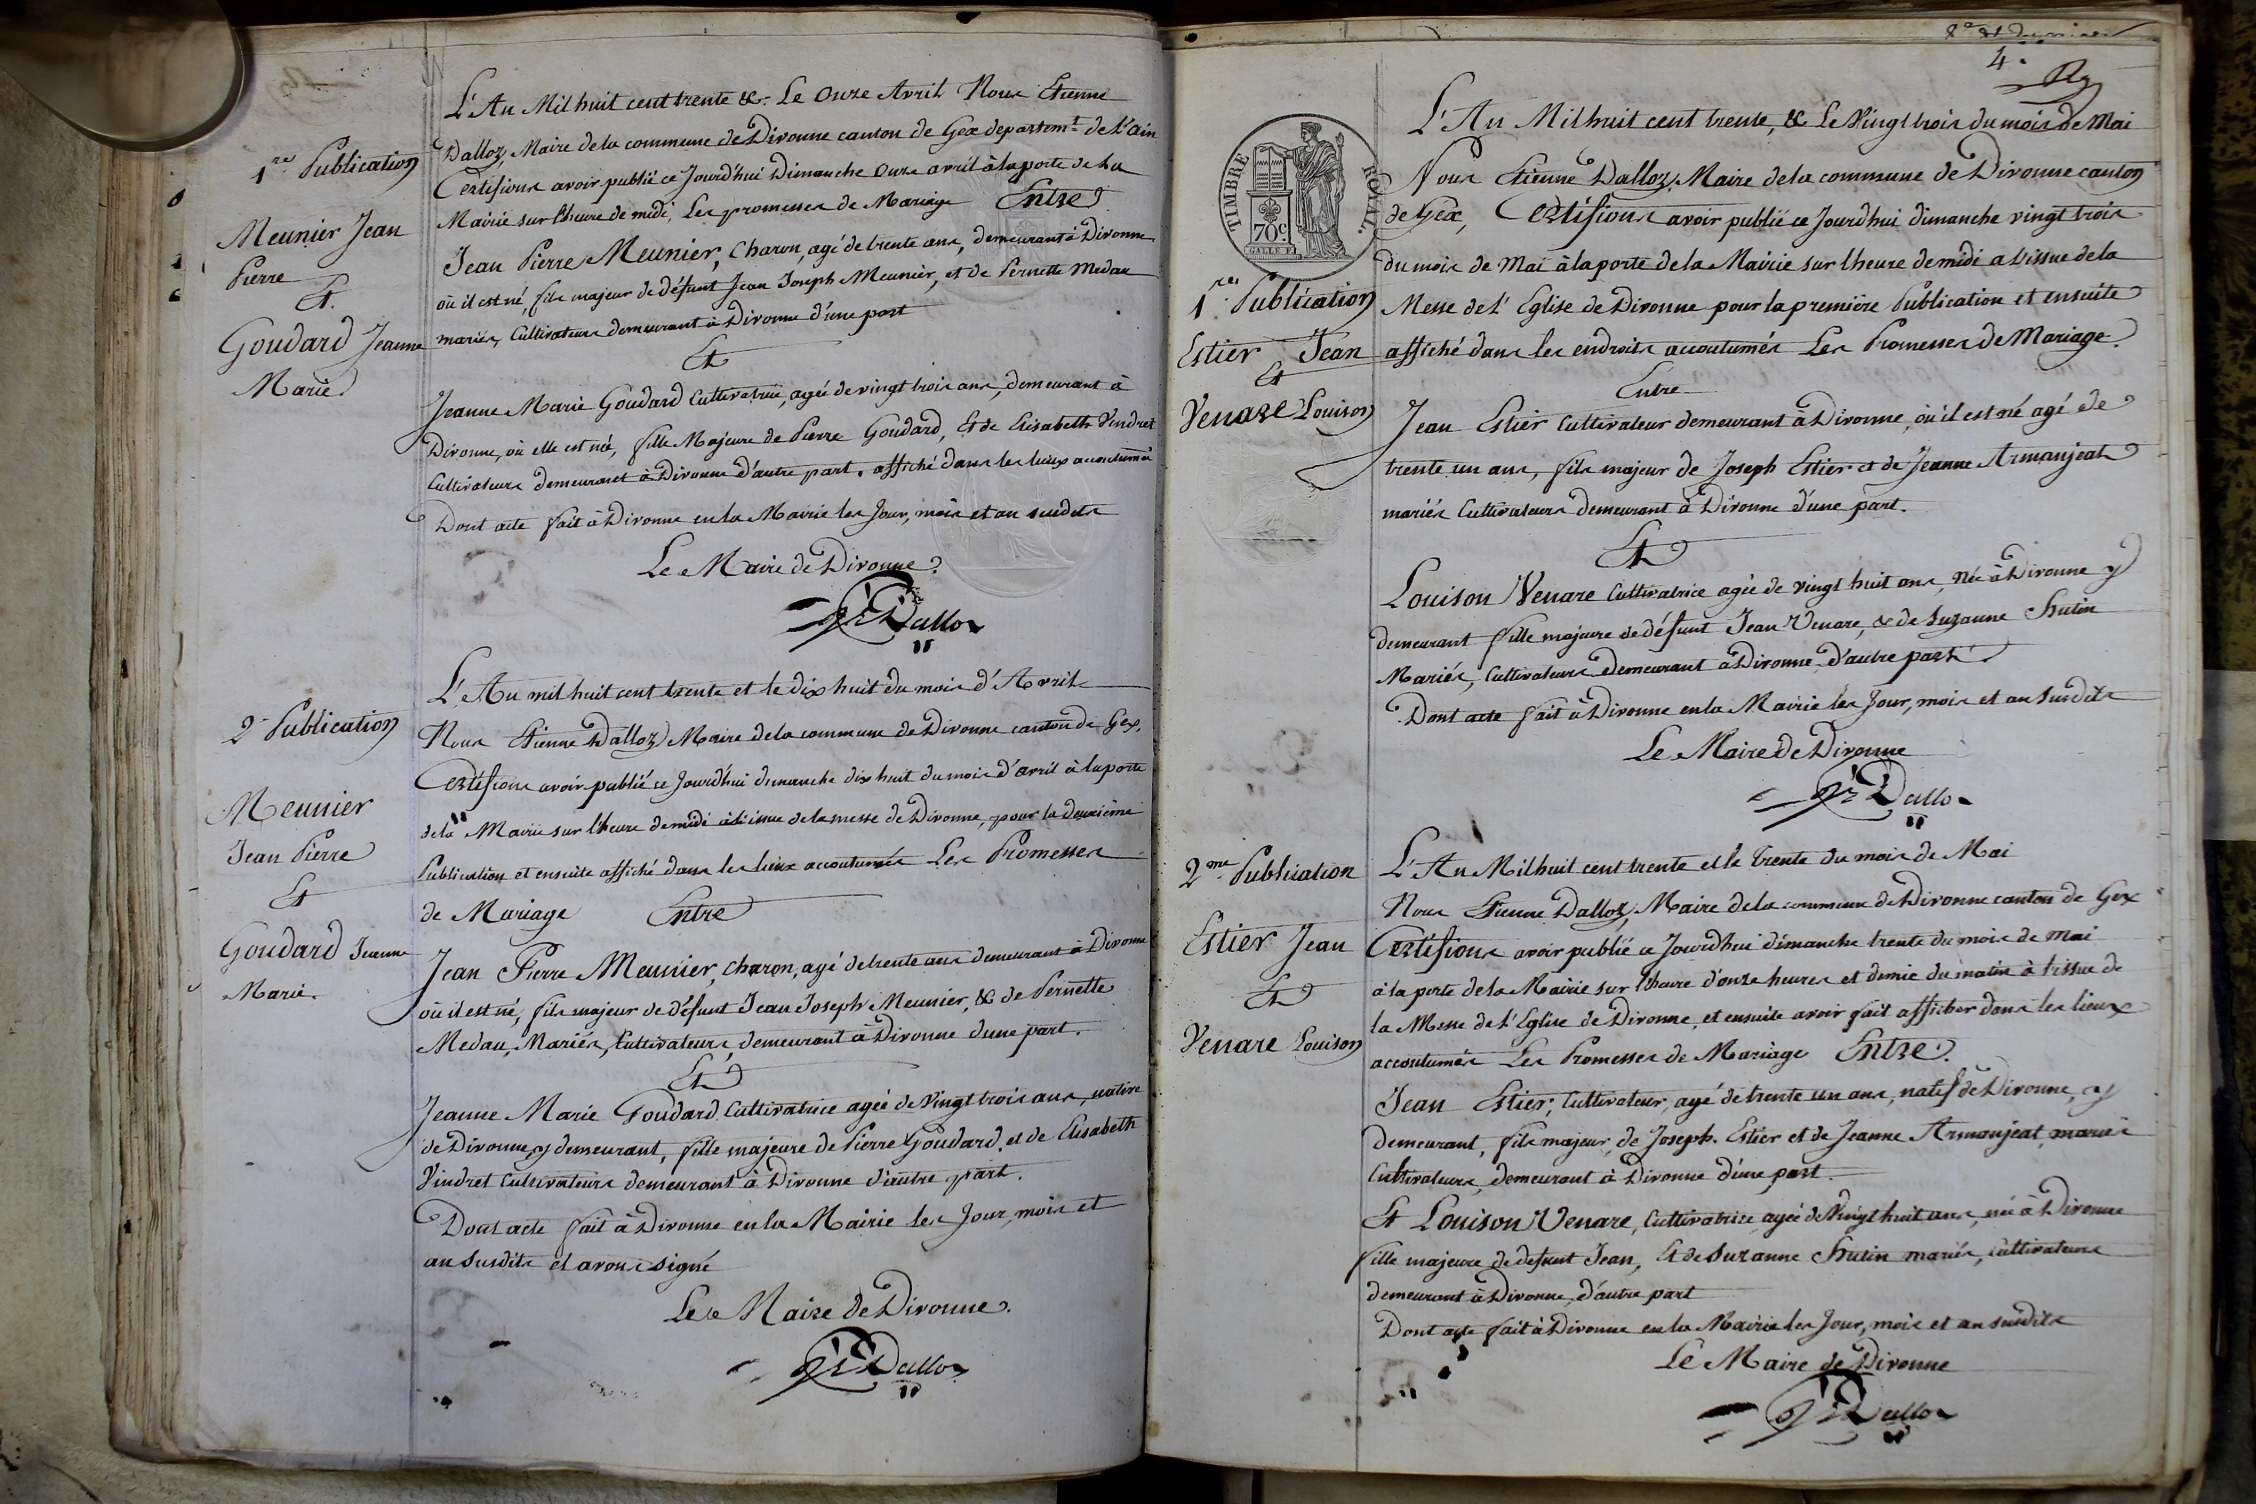 1re Publication
Meunier Jean
Pierre
Et
Goudard Jeanne
Marie
L'An Mil huit cent trente &. Le Onze Avril Nous Etienne
Dalloz, Maire de la commune de Divonne canton de Gex departemt. de l'Ain
Certifions avoir publié ce Jourd'hui Dimanche Onze avril à la porte de La
Mairie sur l'heure de midi, Les promesses de Mariage Entre
Jean Pierre Meunier, Charon, agé de trente ans, demeurant à Divonne
où il est né, fils majeur de défunt Jean Joseph Meunier, et de Pernette Medau
mariés, Cultivateurs demeurant à Divonne d'une part
Et
Jeanne Marie Goudard Cultivatrice, agée de vingt trois ans, demeurant à
Divonne, où elle est née, fille Majeure de Pierre Goudard, Et de Elisabeth Vindret
Cultivateurs demeurant à Divonne d'autre part. affiché dans les lieux accoutumés
Dont acte fait à Divonne en la Mairie les Jour, mois et an susdits
Le Maire de Divonne.
Dalloz
2e Publication
Meunier
Jean Pierre
Et
Goudard Jeanne
Marie.
L'An mil huit cent trente et le dix huit du mois d'Avril
Nous Etienne Dalloz Maire de la commune de Divonne canton de Gex,
Certifions avoir publié ce Jourd'hui dimanche dix huit du mois d'avril à la porte
de la Mairie sur l'heure de midi à l'issue de la messe de Divonne, pour la deuxième
Publication et ensuite affiché dans les lieux accoutumés Les Promesses
de Mariage Entre
Jean Pierre Meunier, Charon, agé de trente ans demeurant à Divonne
où il est né, fils majeur de défunt Jean Joseph Meunier, & de Pernette
Medau, Mariés, Cultivateurs, demeurant à Divonne d'une part.
Et
Jeanne Marie Goudard Cultivatrice agée de Vingt trois ans, native
de Divonne, y demeurant, fille majeure de Pierre Goudard, et de Elisabeth
Vindret Cultivateurs demeurant à Divonne d'autre part.
Dont acte fait à Divonne en la Mairie les Jour, mois et
an Susdits et avons signé
Le Maire de Divonne.
Dalloz
4.
TIMBRE ROYAL.
70c.
1re Publication
Estier Jean
Et
Venare Louison
L'An Mil huit cent trente, & Le Vingt trois du mois de Mai
Nous Etienne Dalloz, Maire de la commune de Divonne canton
de Gex, Certifions avoir publié ce Jourd'hui dimanche vingt trois
du mois de Mai à la porte de la Mairie sur l'heure de midi a l'issue de la
Messe de l'Eglise de Divonne pour la première Publication et ensuite
affiché dans les endroits accoutumés Les Promesses de Mariage.
Entre
Jean Estier Cultivateur demeurant à Divonne, où il est né agé de
trente un ans, fils majeur de Joseph Estier et de Jeanne Armanjeat
mariés Cultivateurs demeurant à Divonne d'une part.
Et
Louison Venare Cultivatrice agée de vingt huit ans, née à Divonne y
demeurant fille majeure de défunt Jean Venare, & de Suzanne Hutin
Mariés, Cultivateurs demeurant à Divonne d'autre part.
Dont acte fait à Divonne en la Mairie les Jour, mois et an Susdits
Le Maire de Divonne
Dalloz
2me Publication
Estier Jean
Et
Venare Louison
L'An Mil huit cent trente et le trente du mois de Mai
Nous Etienne Dalloz, Maire de la commune de Divonne canton de Gex
Certifions avoir publié ce Jourd'hui dimanche trente du mois de Mai
à la porte de la Mairie sur l'heure d'onze heures et demie du matin à l'issue de
la Messe de l'Eglise de Divonne, et ensuite avoir fait afficher dans les lieux
accoutumés Les Promesses de Mariage Entre.
Jean Estier, Cultivateur, agé de trente un ans, natif de Divonne, y
demeurant, fils majeur, de Joseph. Estier et de Jeanne Armanjeat, mariés
Cultivateurs, demeurant à Divonne d'une part.
Et Louison Venare, Cultivatrice, agée de Vingt huit ans, née à Divonne
fille majeure de defunt Jean, Et de Suzanne Hutin mariés, cultivateurs
demeurant à Divonne, d'autre part
Dont acte fait à Divonne en la Mairie les Jour, mois et an susdits
Le Maire de Divonne
Dalloz